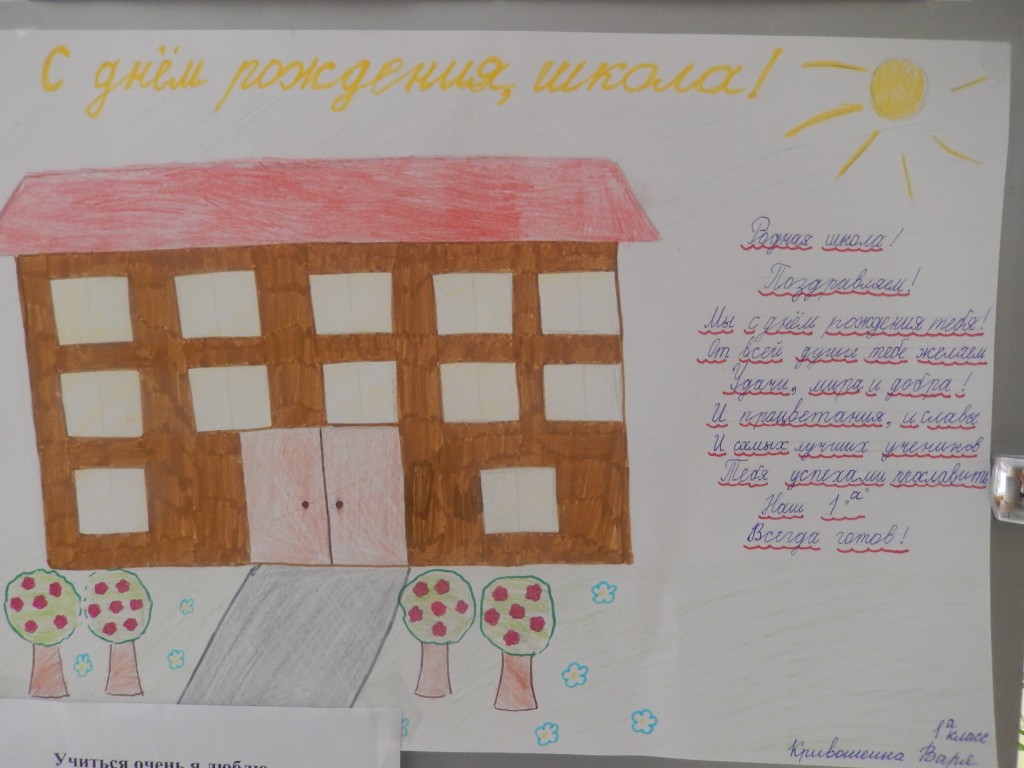 С днём рождения, школа!
Родная школа!
Поздравляем!
Мы с днём рождения тебя!
От всей души тебе желаем
Удачи, мира и добра!
И процветания, и славы
И самых лучших учеников
Тебя успехами прославить
Наш 1 "а"
Всегда готов!
1 а класс
Кривошеина Варя
Учиться очень я люблю